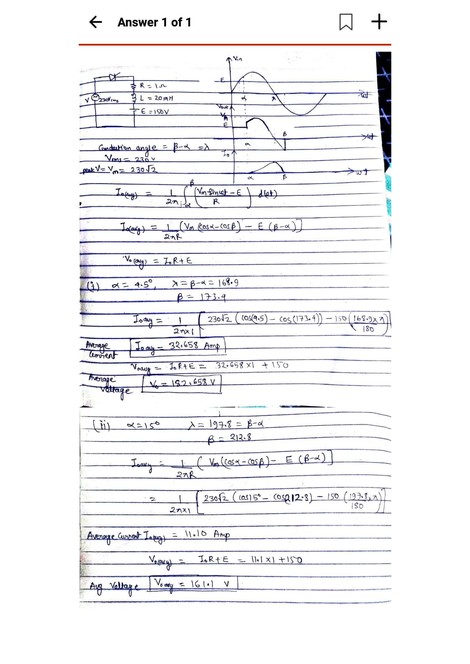 Answer 1 of 1
R = 1Ω
L = 20mH
E = 150V
Vin
E
α
π
wt
Conduction angle = β-α = λ
Vrms = 230v
peak V = Vm = 230√2
Io(avg) = 1/2π ∫α^β (Vm sinωt - E / R) d(ωt)
Io(avg) = 1/2πR [Vm (cosα - cosβ) - E (β-α)]
Vo(avg) = IoR + E
(i) α = 4.5°, λ = β-α = 168.9
β = 173.4
Io avg = 1/2π×1 [230√2 (cos(4.5) - cos(173.4)) - 150 (168.9×π/180)]
Average Current Io avg = 32.658 Amp
Vo avg = IoR + E = 32.658×1 + 150
Average Voltage Vo = 182.658 V
(ii) α = 15° λ = 197.8 = β-α
β = 212.8
Io avg = 1/2πR (Vm (cosα - cosβ) - E (β-α)]
= 1/2π×1 [230√2 (cos15° - cos212.8) - 150 (197.8×π/180)]
Average Current Io(avg) = 11.10 Amp
Vo(avg) = IoR + E = 11.1×1 + 150
Avg Voltage Vo avg = 161.1 V